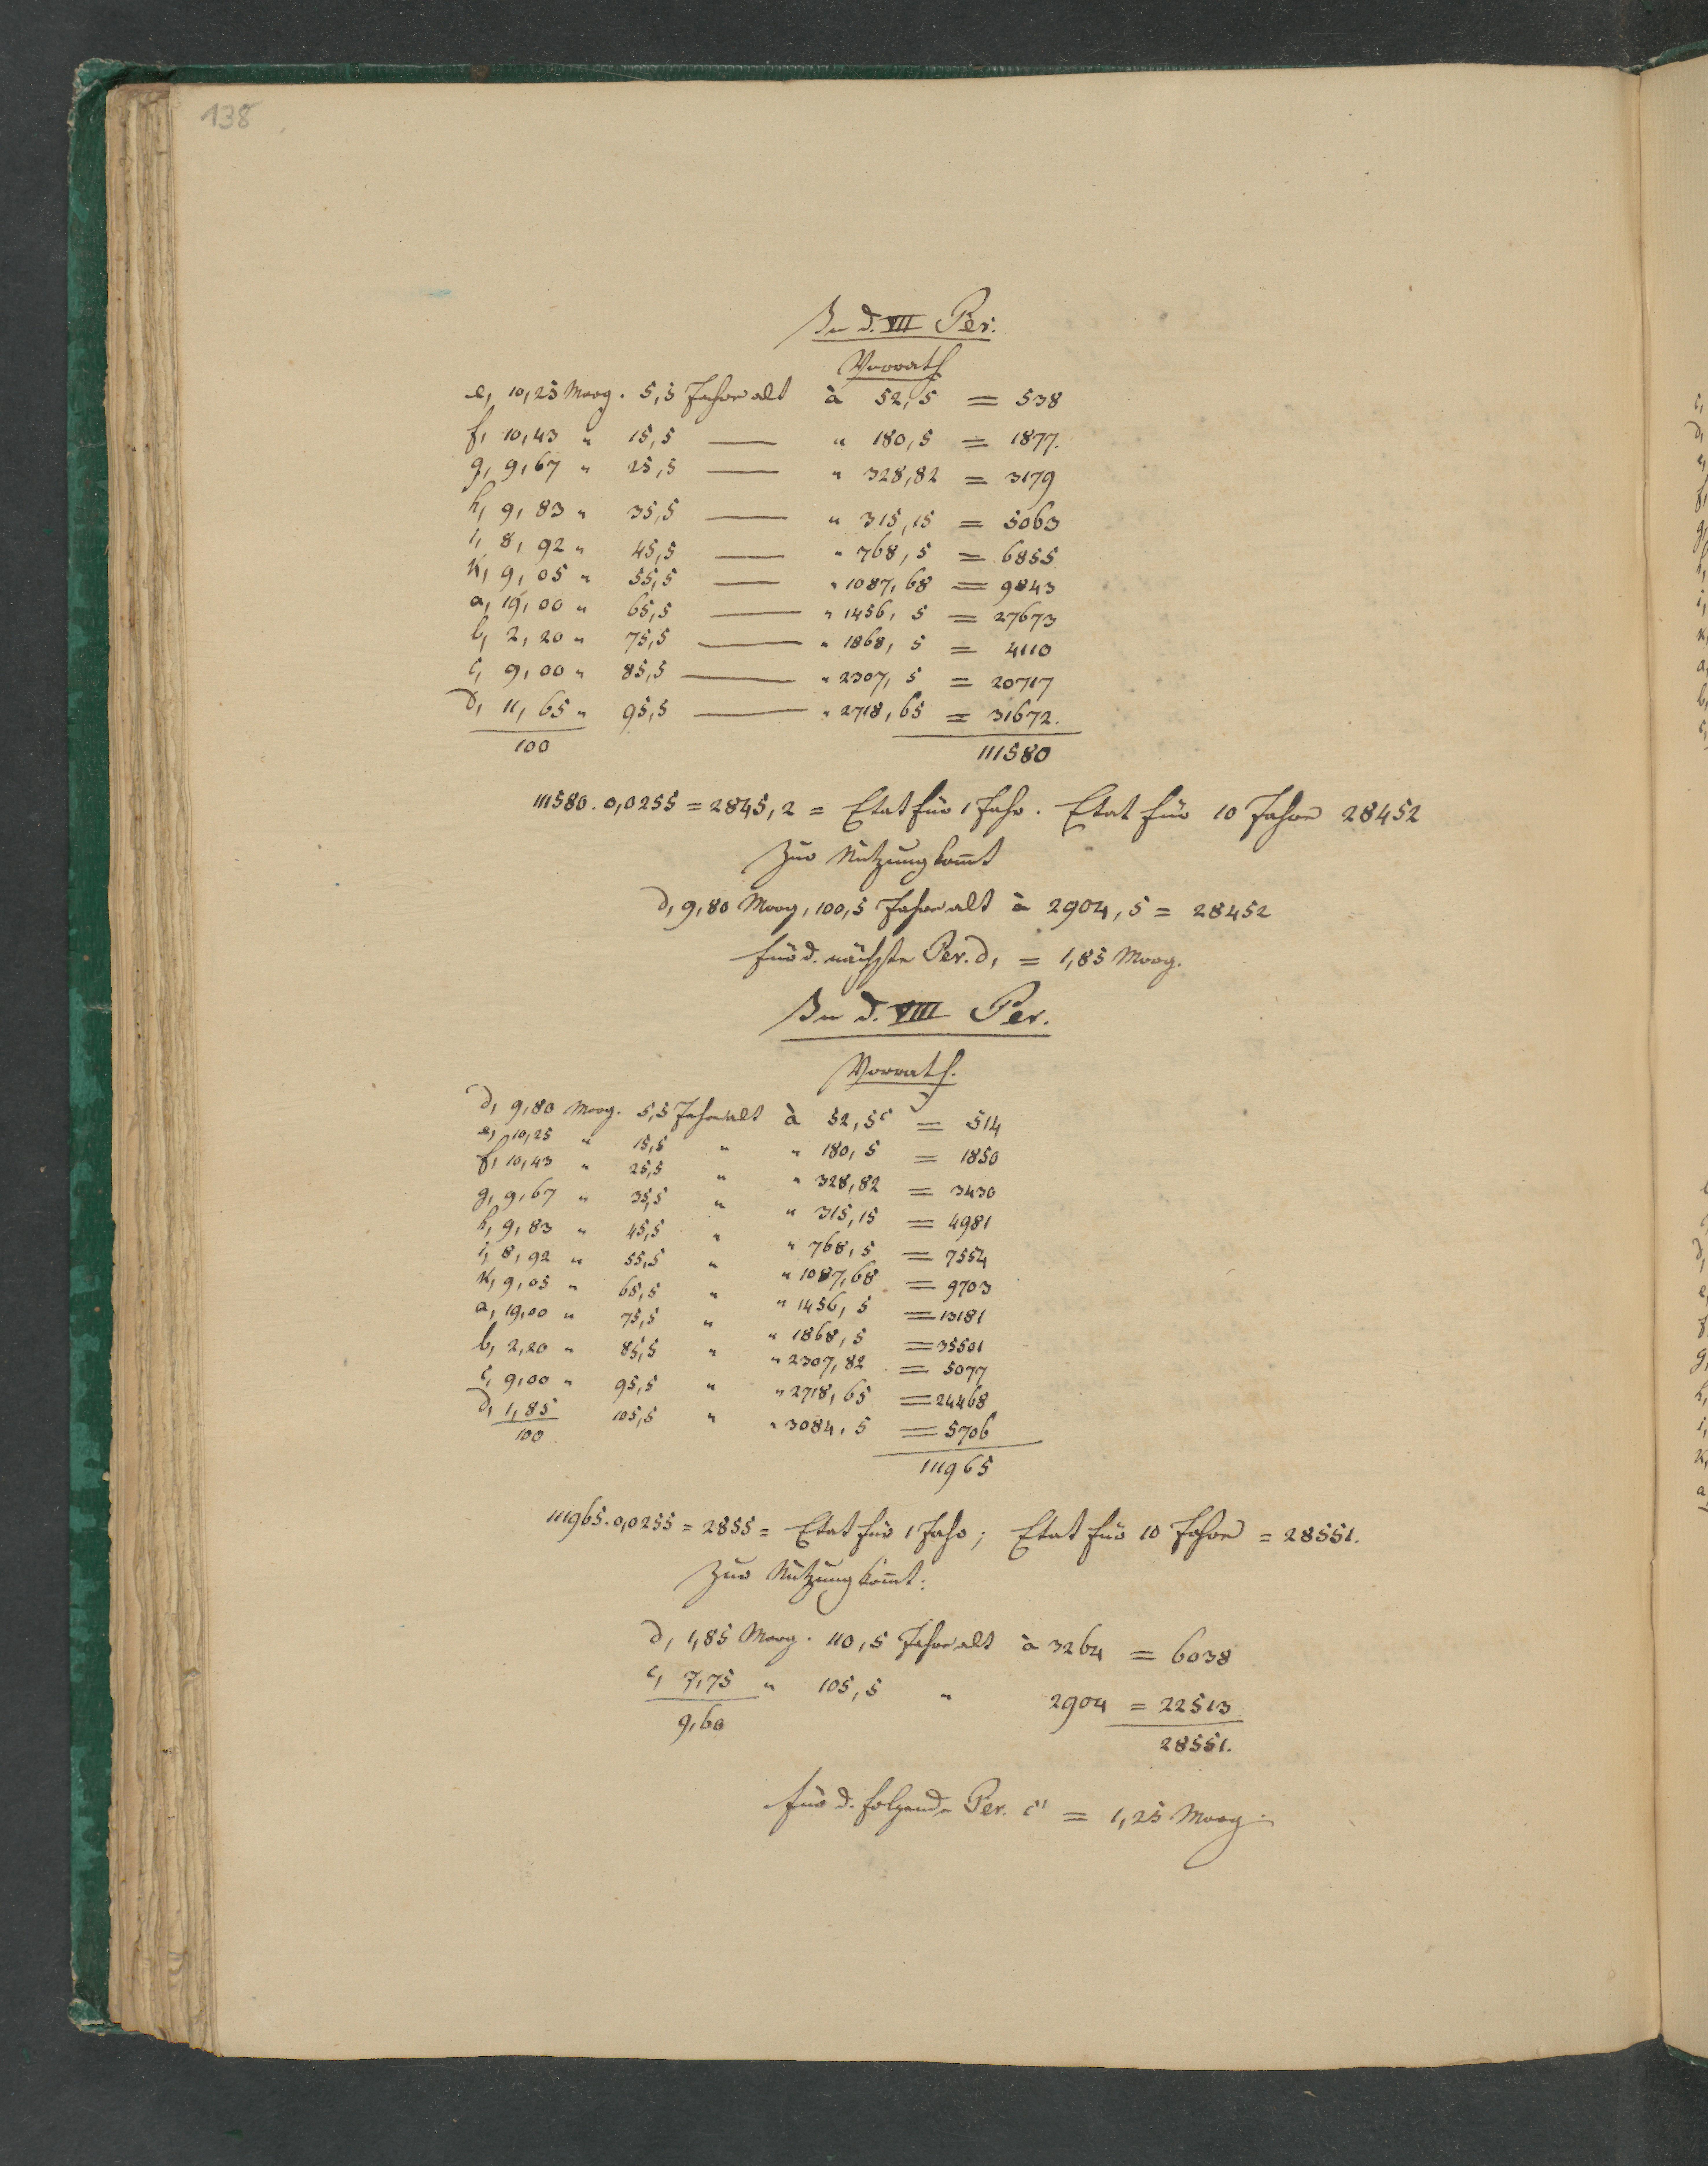 138
In d. VII Per.
Vorrath
e, 10,25 Morg. 5,5 Jahre alt à 52,5 = 538
f, 10,43 " 15,5 — " 180,5 = 1877.
g, 9,67 " 25,5 — " 328,82 = 3179
h, 9,83 " 35,5 — " 315,15 = 5063
i, 8,92 " 45,5 — " 768,5 = 6855
k, 9,05 " 55,5 — " 1087,68 = 9843
a, 19,00 " 65,5 — " 1456,5 = 27673
b, 2,20 " 75,5 — " 1868,5 = 4110
c, 9,00 " 85,5 — " 2307,5 = 20717
d, 11,65 " 95,5 — " 2718,65 = 31672.
100 111580
111580.0,0255 = 2845,2 = Etat für 1 Jahr. Etat für 10 Jahre 28452
Zur Nutzung kom̄t
d, 9,80 Morg, 100,5 Jahre alt à 2904,5 = 28452
für d. nächste Per. d, = 1,85 Morg.
In d. VIII Per.
Vorrath.
d, 9,80 Morg. 5,5 Jahre alt à 52,5 = 514
e, 10,25 " 15,5 " " 180,5 = 1850
f, 10,43 " 25,5 " " 328,82 = 3430
g, 9,67 " 35,5 " " 315,15 = 4981
h, 9,83 " 45,5 " " 768,5 = 7554
i, 8,92 " 55,5 " " 1087,68 = 9703
k, 9,05 " 65,5 " " 1456,5 = 13181
a, 19,00 " 75,5 " " 1868,5 = 35501
b, 2,20 " 85,5 " " 2307,82 = 5077
c, 9,00 " 95,5 " " 2718,65 = 24468
d, 1,85 105,5 " " 3084,5 = 5706
100 111965
111965.0,0255 = 2855 = Etat für 1 Jahr; Etat für 10 Jahre = 28551.
Zur Nutzung kom̄t:
d, 1,85 Morg. 110,5 Jahre alt à 3264 = 6038
c, 7,75 " 105,5 " 2904 = 22513
9,60 28551.
für d. folgende Per. c' = 1,25 Morg.